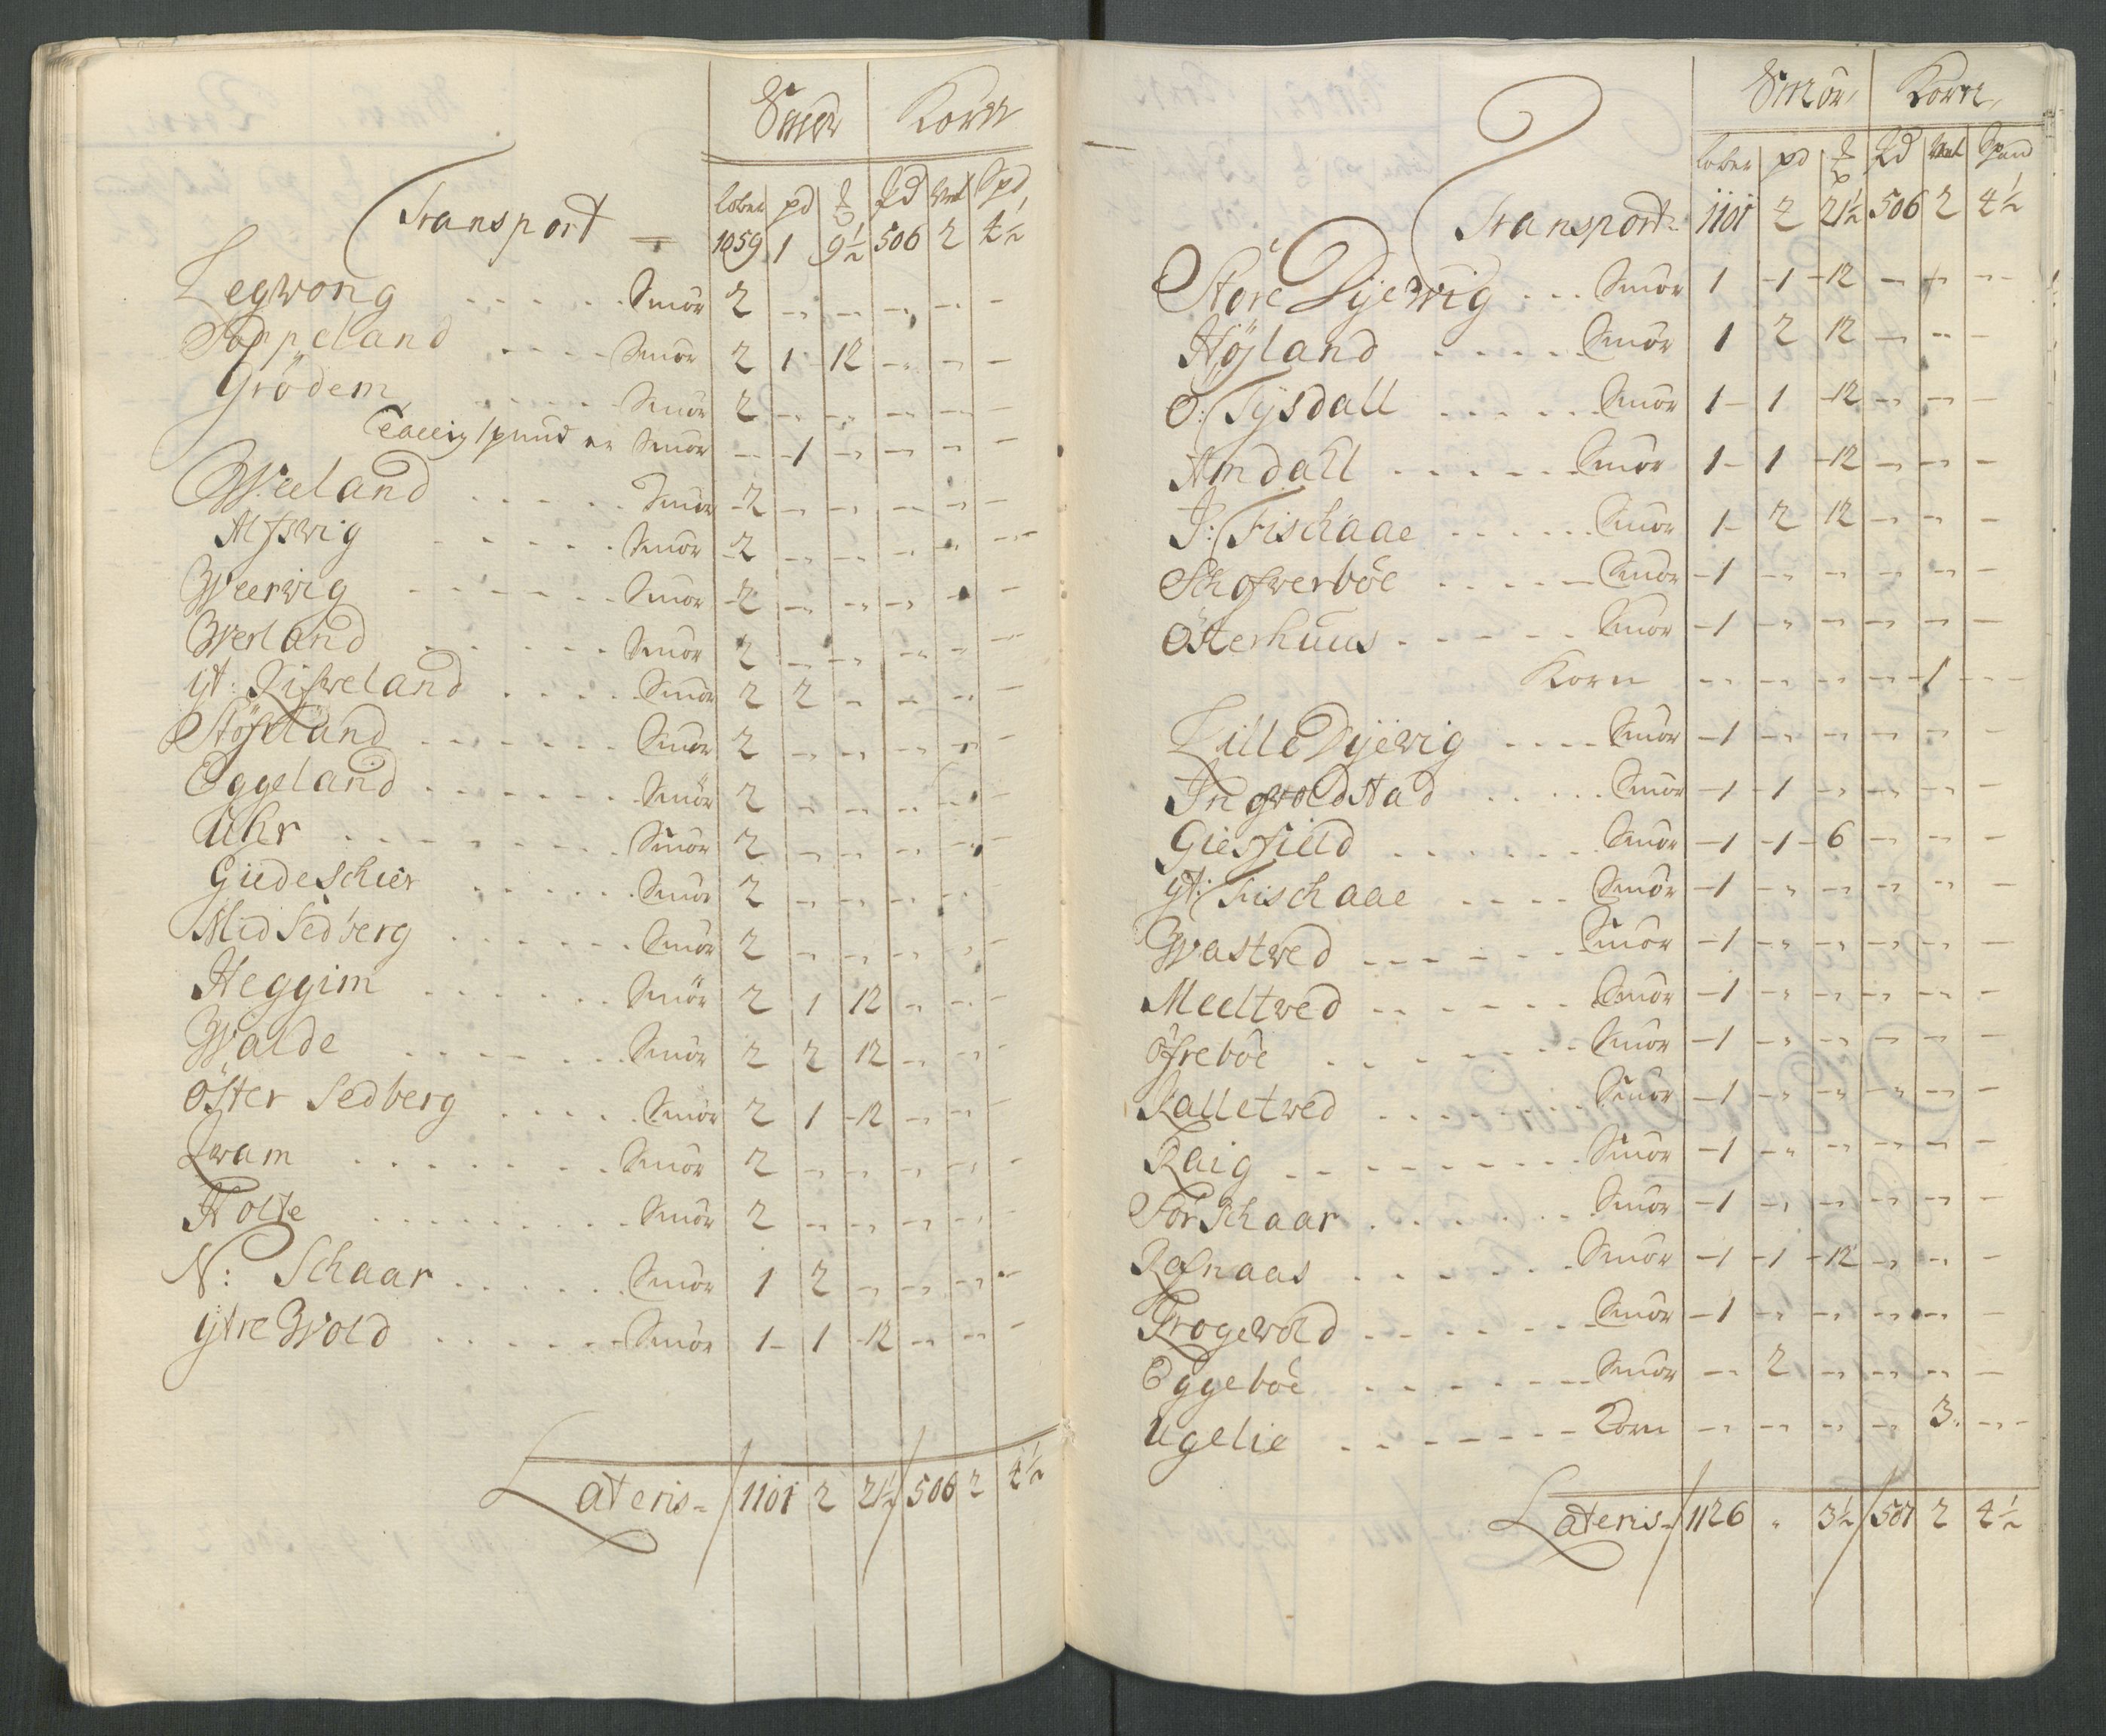 Smør Korn
løber pd ℔ Pd Vet Spd,
Transport = 1059 1 9½ 506 2 4½
Legwong - - - - - Smör 2 - - - - -
Soppeland - - - - Smör 2 1 12 - - -
Grödem - - - - - Smör 2 - - - - -
Smör - 1 - - - -
Weeland - - - - - Smör 2 - - - - -
Alfswig - - - - - Smör 2 - - - - -
Weerwig - - - - - Smör 2 - - - - -
Werland - - - - - Smör 2 - - - - -
yt: Lifweland - - - - Smör 2 2 - - - -
Stöfeland - - - - - Smör 2 - - - - -
Eggeland - - - - - Smör 2 - - - - -
Uhr - - - - - - Smör 2 - - - - -
Giedeschier - - - - - Smör 2 - - - - -
Mid Sedberg - - - - - Smör 2 - - - - -
Heggim - - - - - Smör 2 1 12 - - -
Walde - - - - - Smör 2 2 12 - - -
Öster Sedberg - - - - Smör 2 1 12 - - -
Qwam - - - - - - Smör 2 - - - - -
Holte - - - - - - Smör 2 - - - - -
N: Schaar - - - - - Smör 1 2 - - - -
ytre Wold - - - - - Smör 1 1 12 - - -
Lateris = 1101 2 21½ 506 2 4½
Smör, Korn,
løber pd ℔ Pd Vet Spand
Transport = 1101 2 21½ 506 2 4½
Store Dyewig - - - Smör 1 1 12 - - -
Höjland - - - - Smör 1 2 12 - - -
Ö: Tysdall - - - - - Smör 1 1 12 - - -
Amdall - - - - - Smör 1 1 12 - - -
J: Fischaae - - - - - Smör 1 2 12 - - -
Schofwerböe - - - - Smör 1 - - - - -
Österhuus - - - - - Smör 1 - - - - -
Korn - - - - 1 -
Lille Dyewig - - - - Smör 1 - - - - -
Ingwoldstad - - - - - Smör 1 1 - - - -
Giesfield - - - - - Smör 1 1 6 - - -
yt: Fischaae - - - - Smör 1 - - - - -
Wastwed - - - - - - Smör 1 - - - - -
Meeltwed - - - - - - Smör 1 - - - - -
Öfreböe - - - - - - Smör 1 - - - - -
Kalletwed - - - - - - Smör 1 - - - - -
Raig - - - - - - - Smör 1 - - - - -
Forschaar - - - - - - Smör 1 - - - - -
Rafnaas - - - - - - Smör 1 1 12 - - -
Krogewold - - - - - - Smör 1 - - - - -
Eggeböe - - - - - - Smör - 2 - - - -
Ugelie - - - - - - - Korn - - - - 3 -
Lateris = 1126 " 3½ 507 2 4½